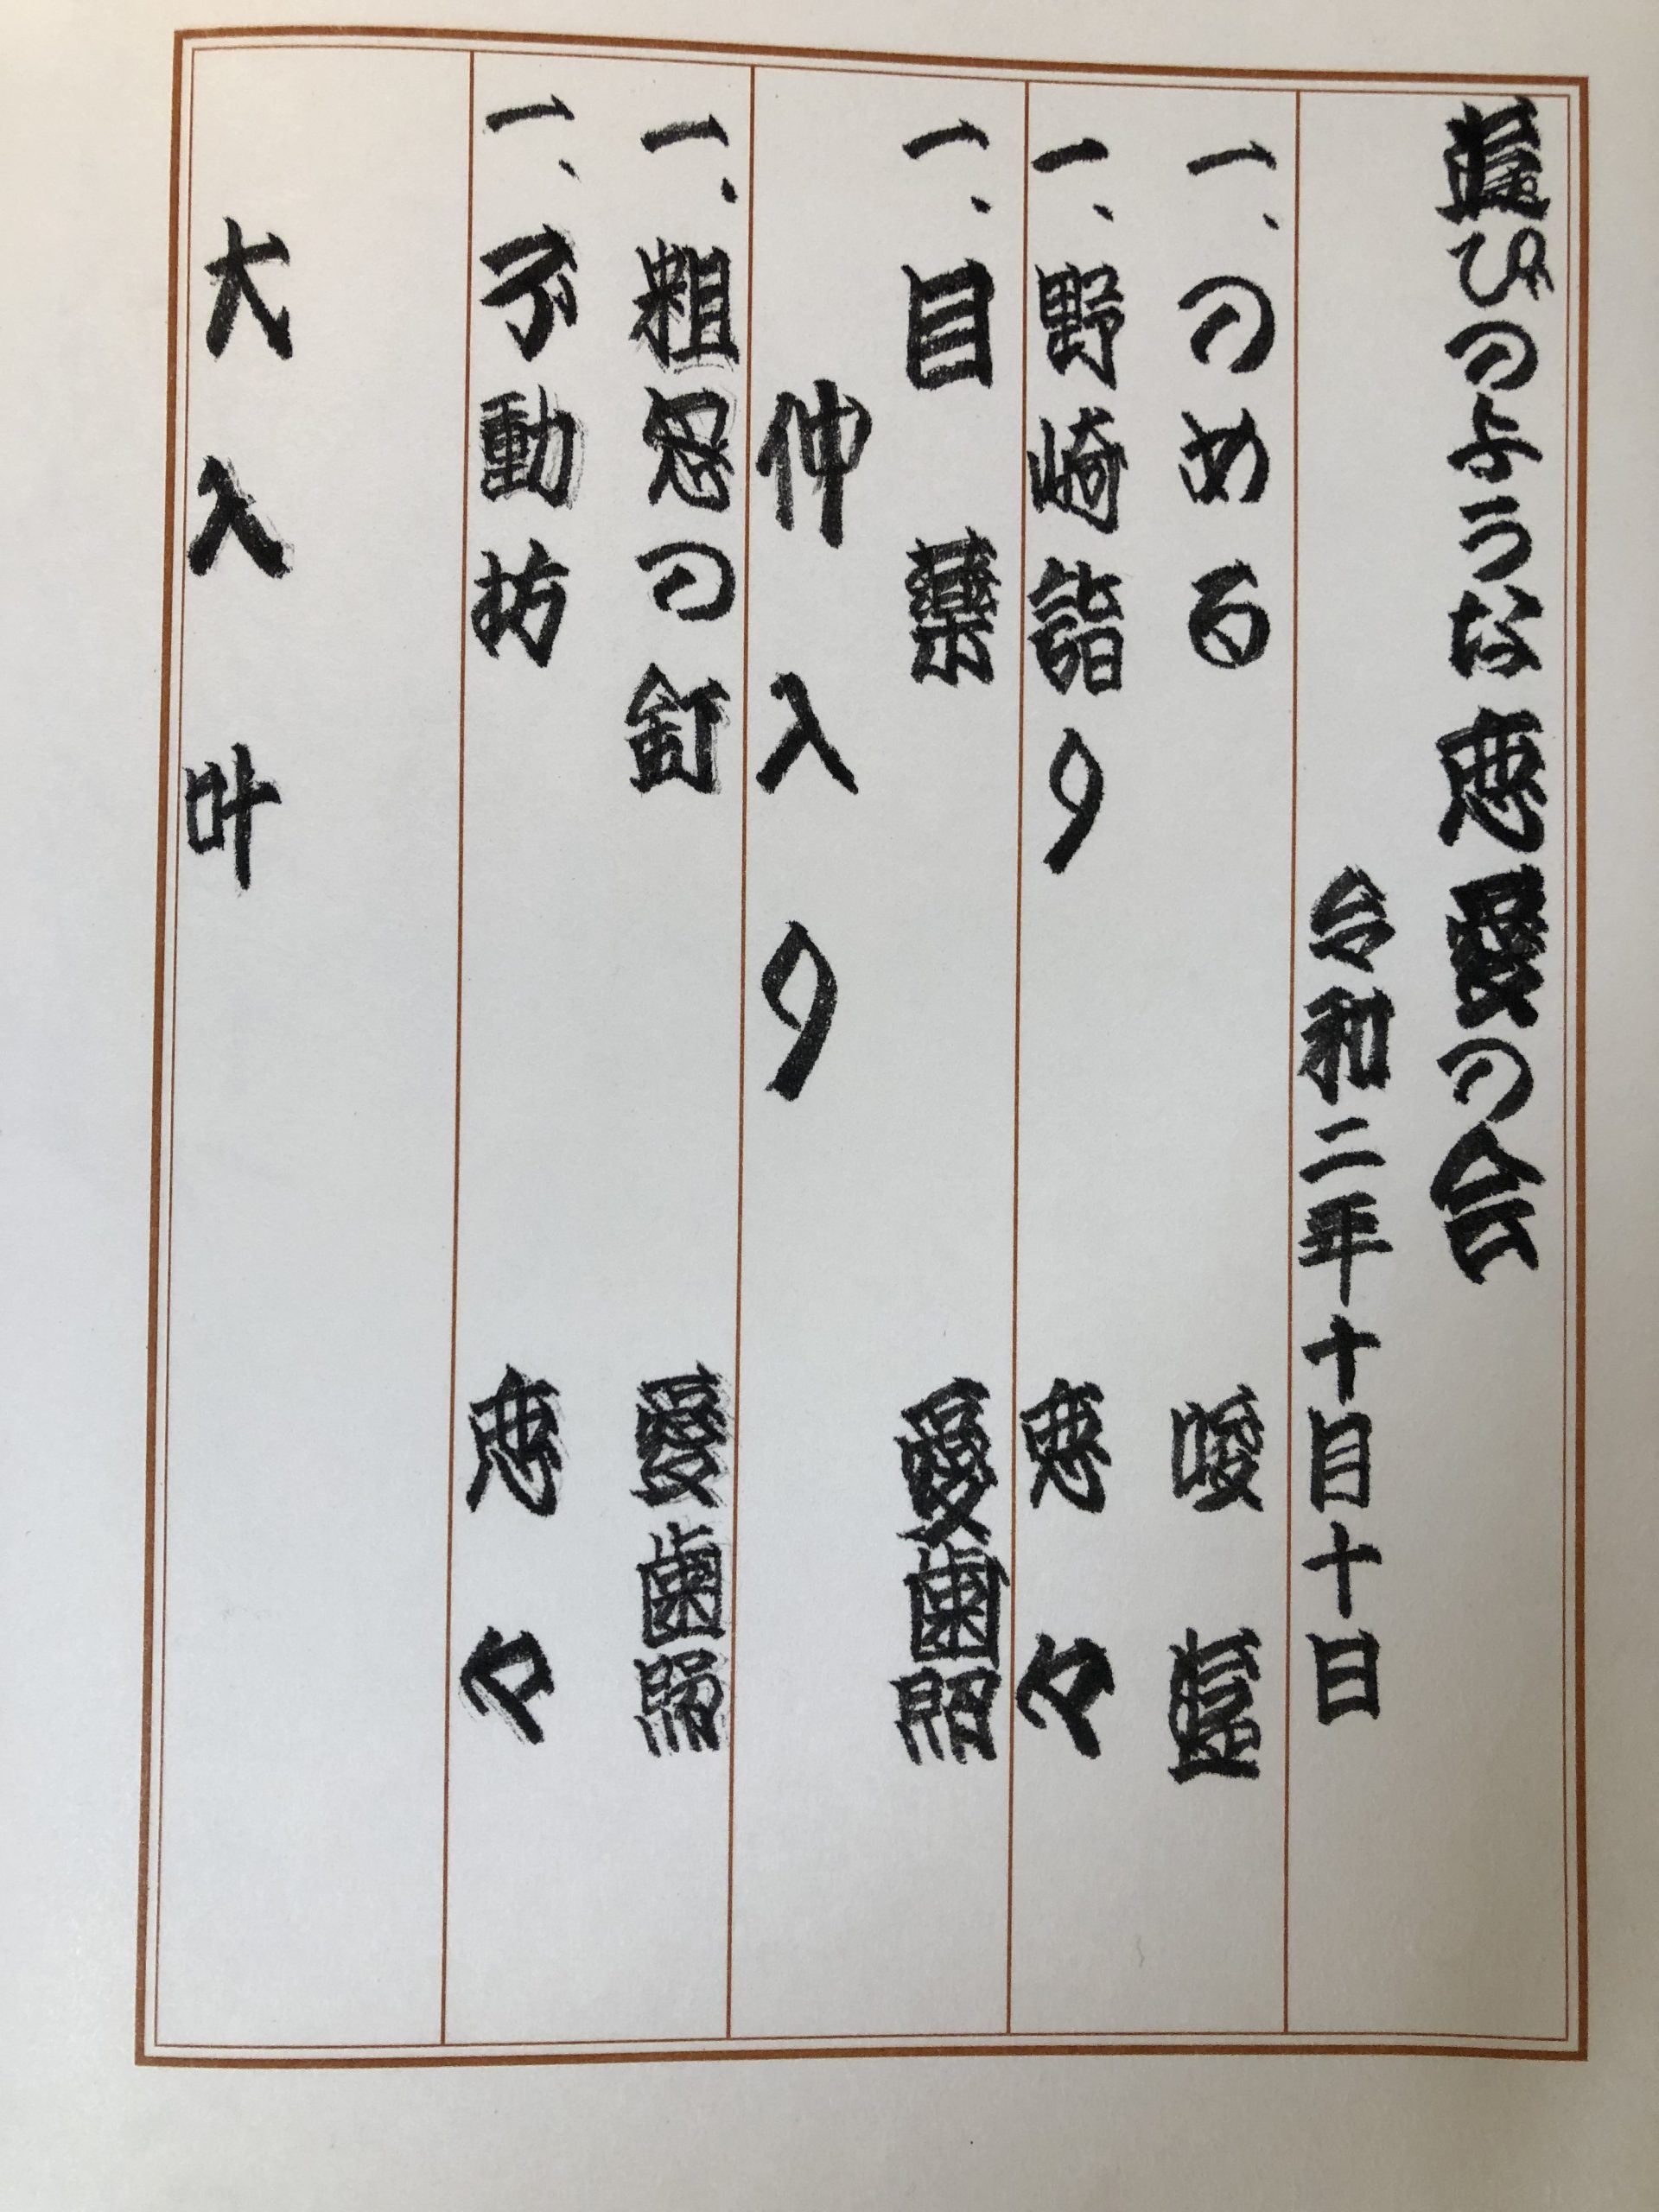 びのような恋愛の会
令和二年十月十日
一、のめる 唆
一、野崎詣り 恋々
一、目薬 愛歯照
仲入り
一、粗忽の釘 愛歯照
一、不動坊 恋々
大入叶